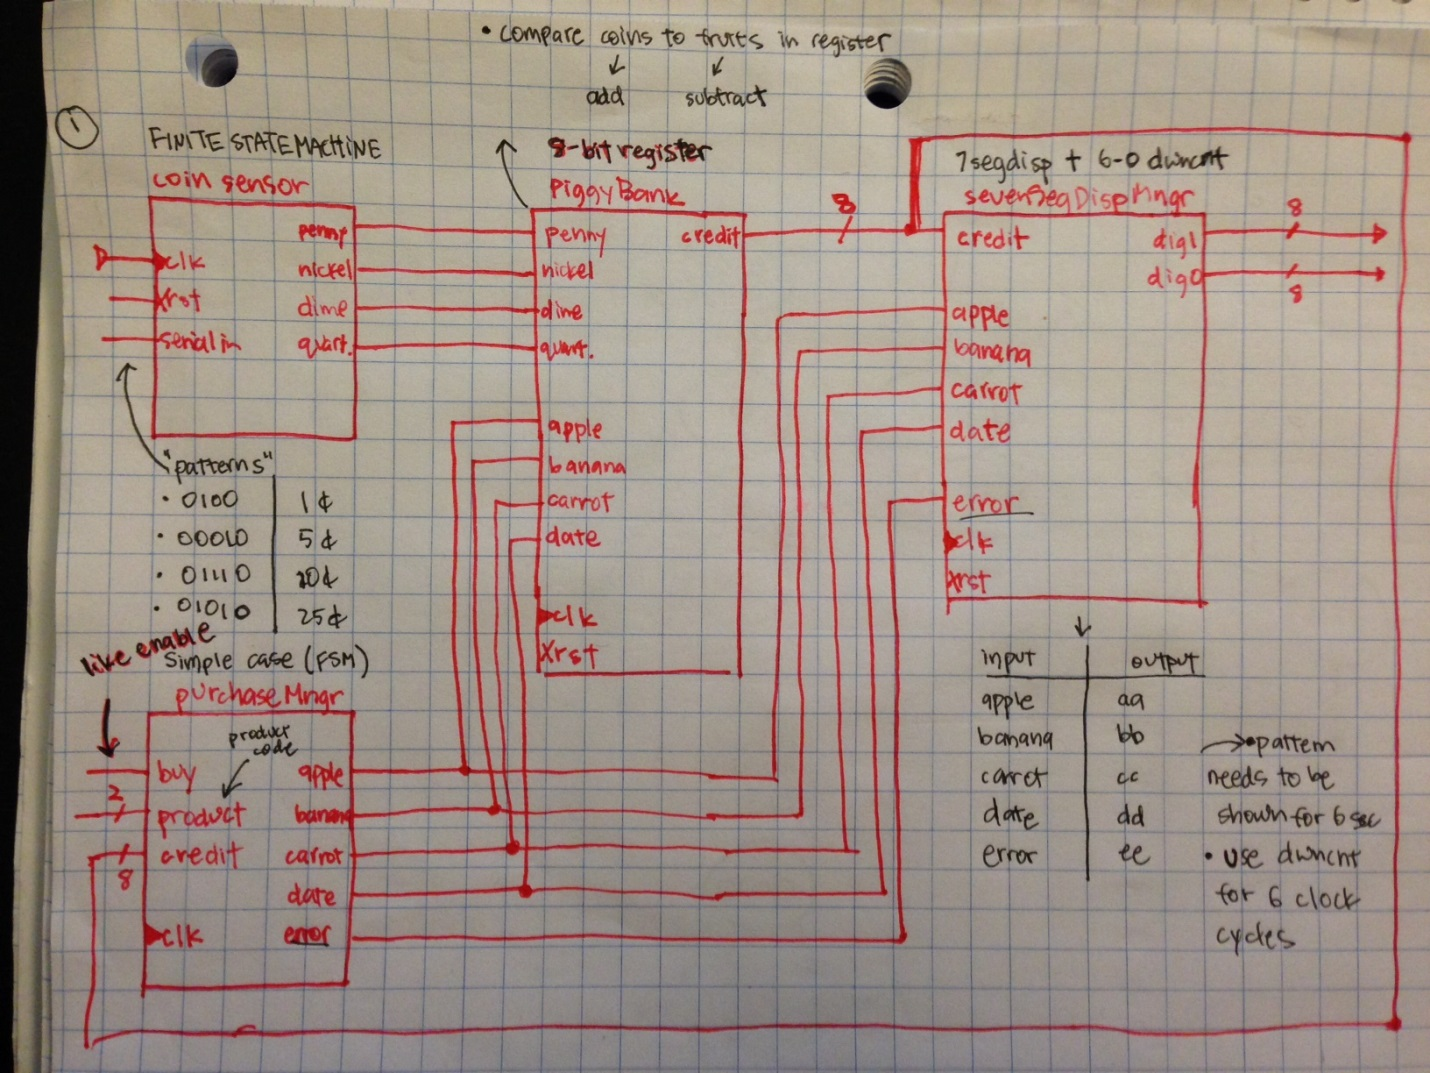 • compare coins to fruits in register
add subtract
1
FINITE STATE MACHINE
coin sensor
penny
clk
nickel
xrst
dime
serial in
quart.
"patterns"
• 0100 1¢
• 00010 5¢
• 01110 10¢
• 01010 25¢
8-bit register
PiggyBank
penny credit
nickel
dime
quart.
apple
banana
carrot
date
clk
Xrst
8
7segdisp + 6-0 dwncnt
sevenSegDispMngr
credit dig1
dig0
8
8
apple
banana
carrot
date
error
clk
Xrst
like enable
Simple case (FSM)
purchaseMngr
product
code
buy apple
2
product banana
credit carrot
8
date
clk error
input output
apple aa
banana bb
carrot cc
date dd
error ee
• pattern
needs to be
shown for 6 sec
• use dwncnt
for 6 clock
cycles